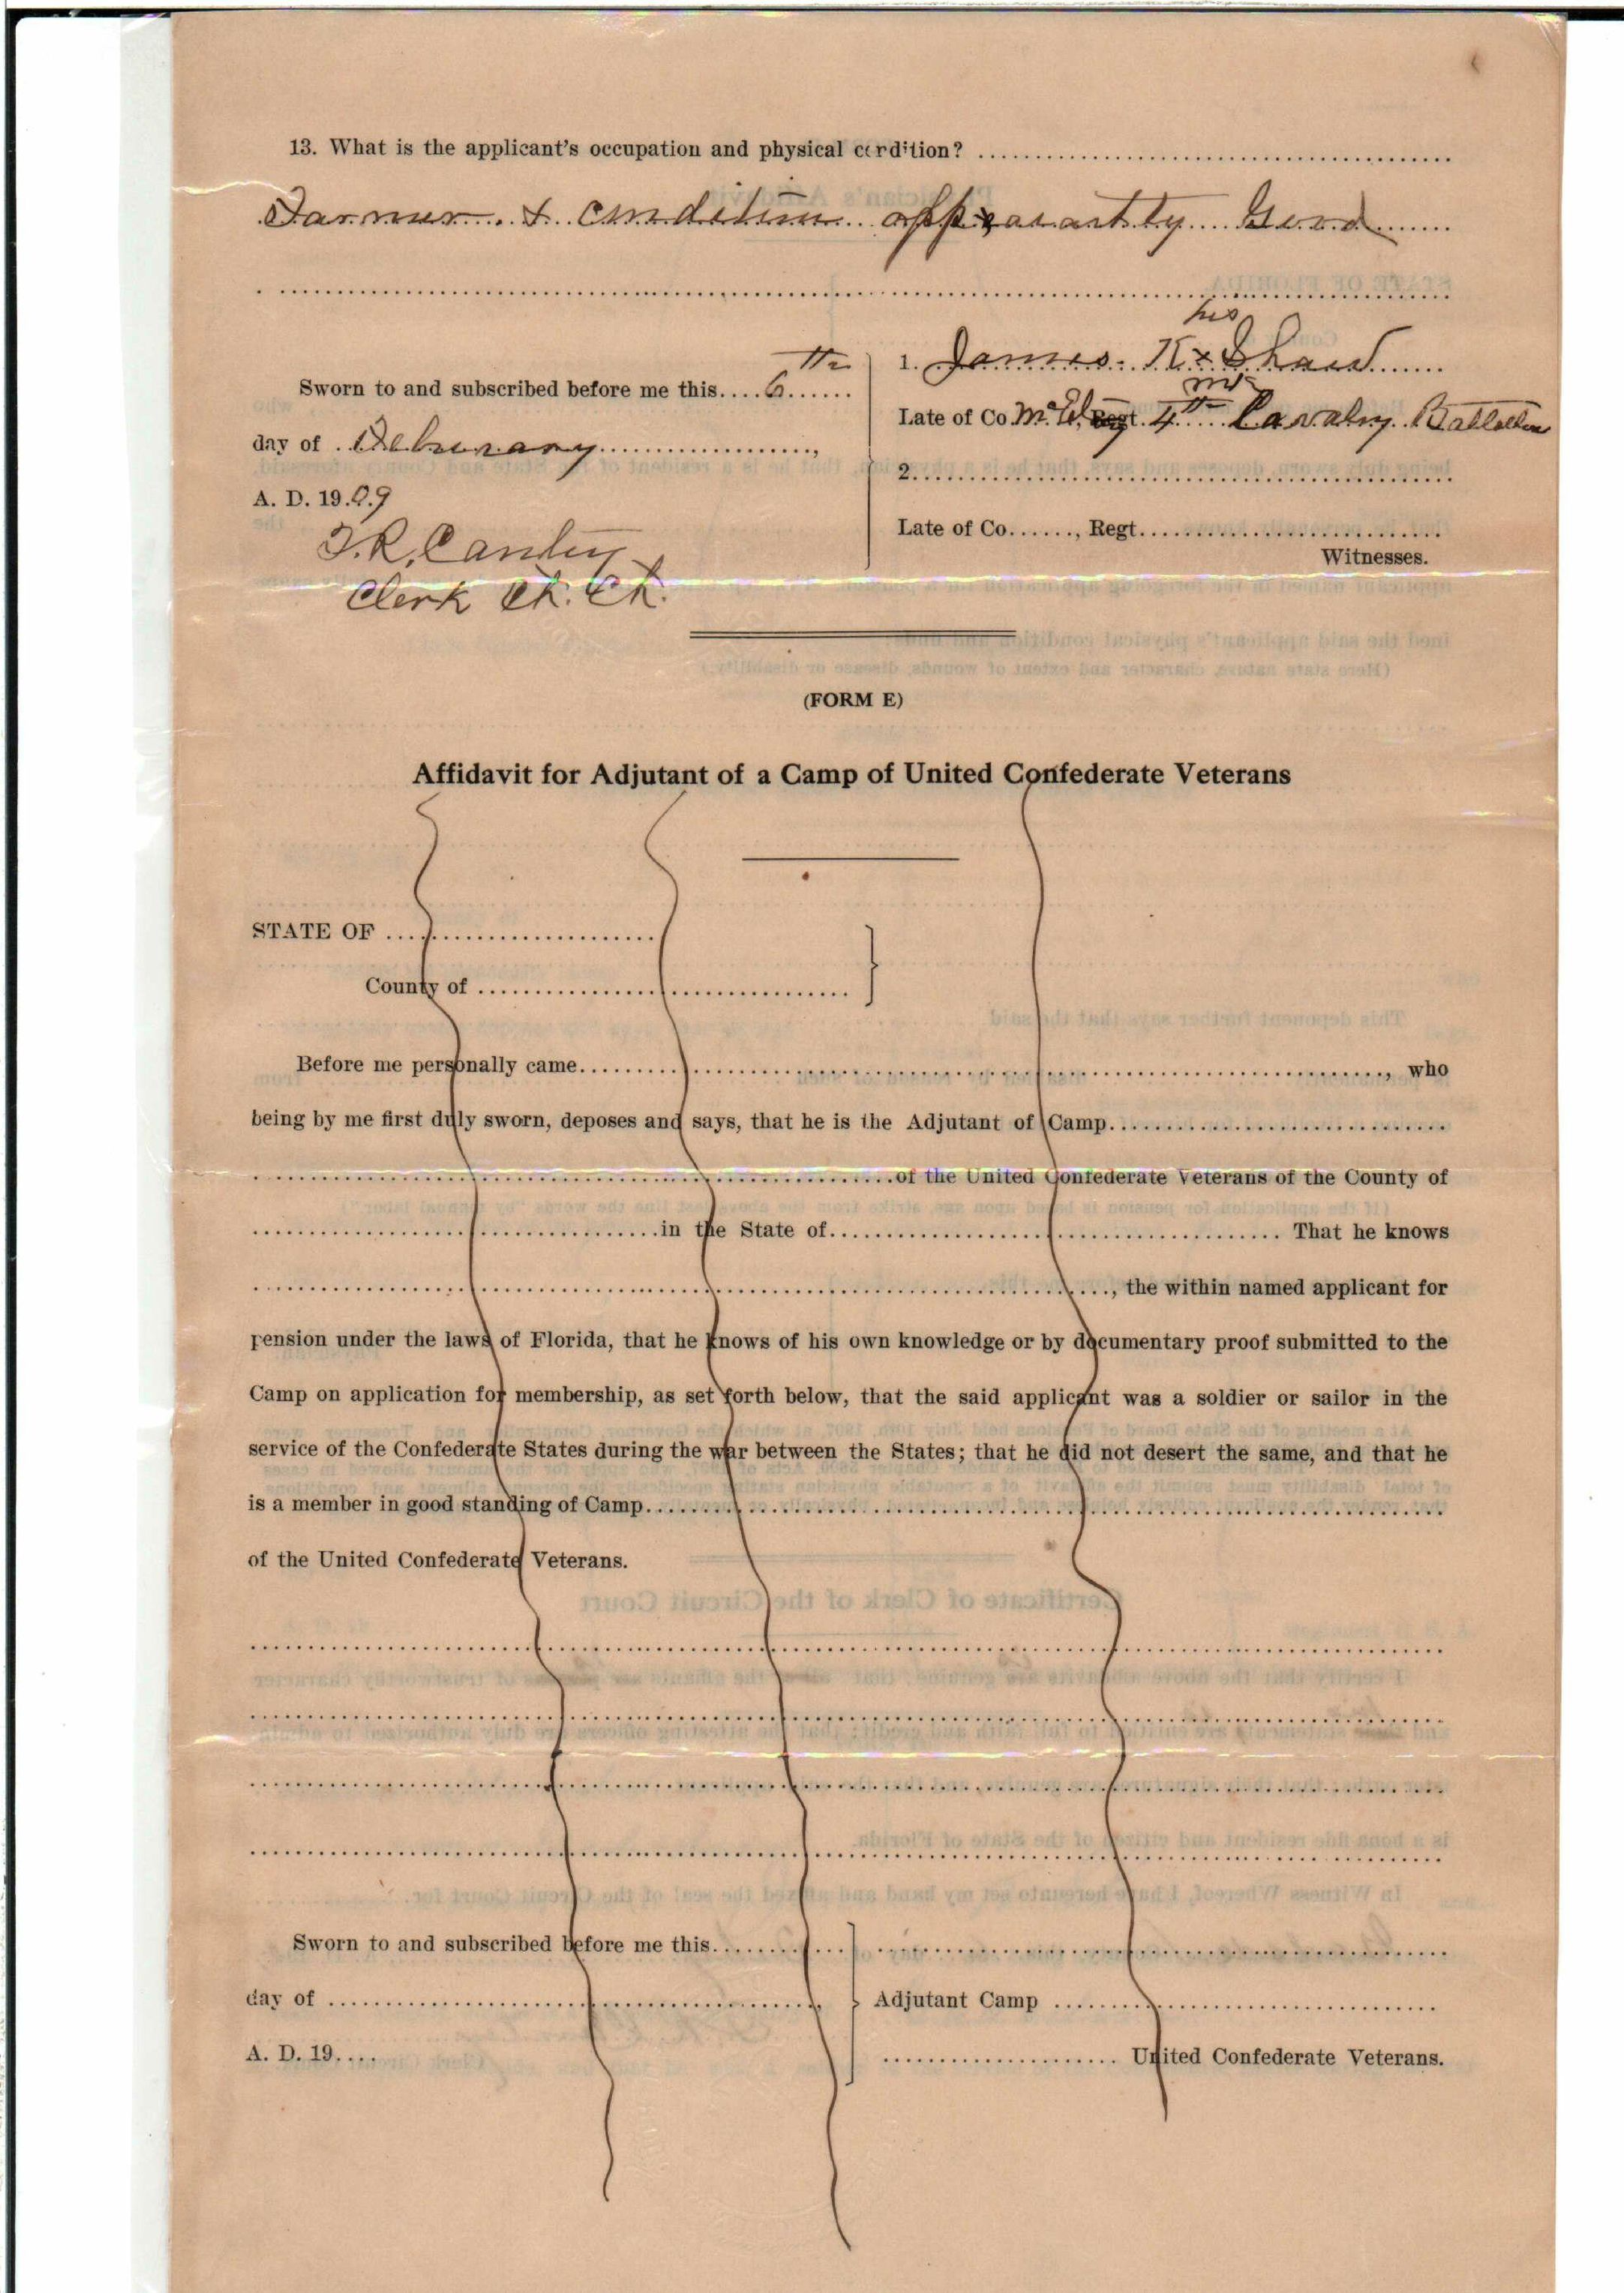 13. What is the applicant's occupation and physical condition? ........................................
Farmer & Condition apparantly Good
Sworn to and subscribed before me this....6th......
day of Feburary....................,
A. D. 1909
T.R. Canley
Clerk Ct. Ct.
his
1. James K x Shaw
mk
Late of Co. McElvy, Regt. 4th Cavalry Battallion
2..................................................
Late of Co......., Regt............................
Witnesses.
(FORM E)
Affidavit for Adjutant of a Camp of United Confederate Veterans
STATE OF ..............................
County of ........................................
Before me personally came............................................................, who
being by me first duly sworn, deposes and says, that he is the Adjutant of Camp..............................
............................................................of the United Confederate Veterans of the County of
........................................in the State of........................................ That he knows
................................................................................, the within named applicant for
pension under the laws of Florida, that he knows of his own knowledge or by documentary proof submitted to the
Camp on application for membership, as set forth below, that the said applicant was a soldier or sailor in the
service of the Confederate States during the war between the States; that he did not desert the same, and that he
is a member in good standing of Camp................................................................................
of the United Confederate Veterans.
Sworn to and subscribed before me this............
day of ..................................................,
A. D. 19....
Adjutant Camp ........................................
..................... United Confederate Veterans.